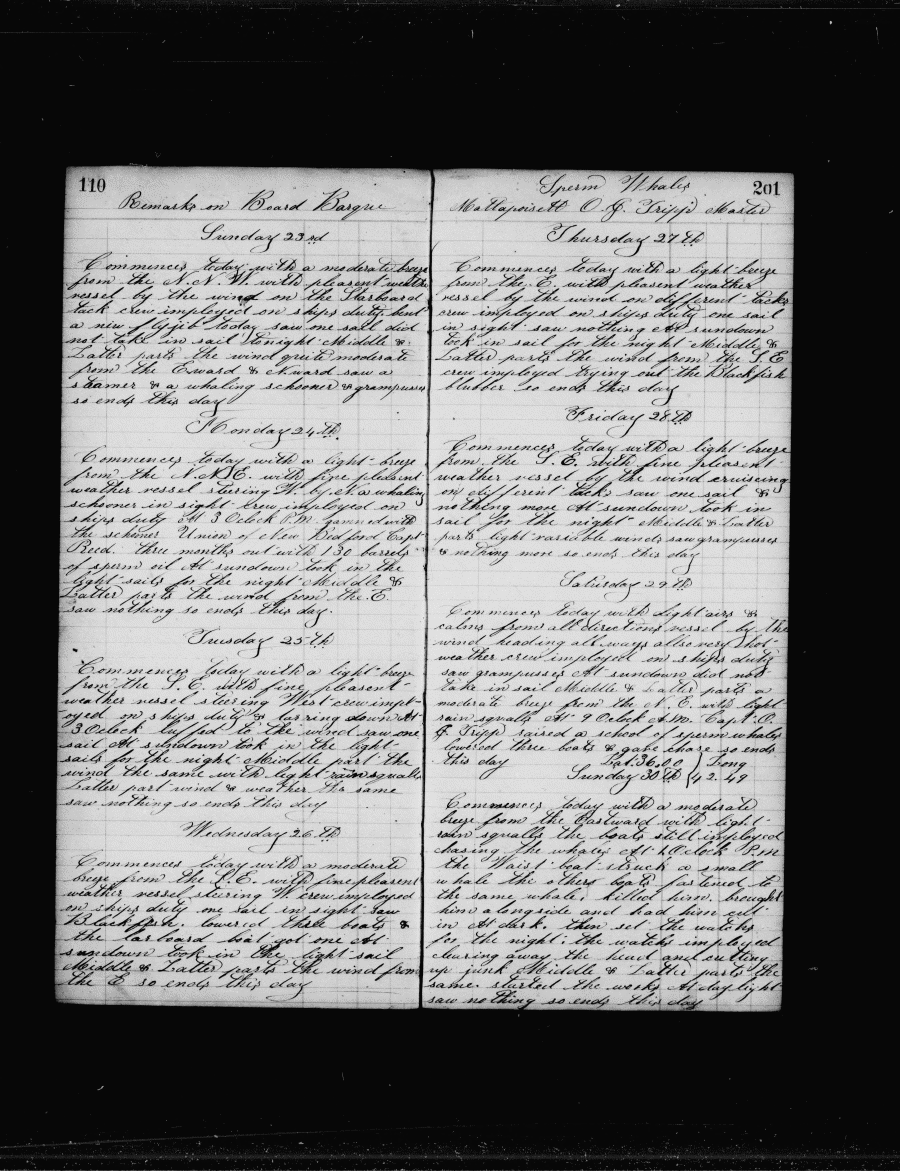 110
Remarks on Board Barque
Sunday 23rd
Commences today with a moderate breeze
from the N.N.W. with pleasent weather
vessel by the wind on the Starboard
tack crew imployed on ships duty bent
a new flyjib today saw one sail did
not take in sail tonight Middle &
Latter parts the wind quite moderate
from the Eward & Nward saw a
steamer & a whaling schooner & grampuses
so ends this day
Monday 24th
Commences today with a light breeze
from the N.N.E. with fine pleasent
weather vessel steering W. by N. a whaling
schooner in sight crew imployed on
ships duty At 3 Oclock P.M. gammed with
the schoner Union of New Bedford Capt
Reed three months out with 130 barrels
of sperm oil At sundown took in the
light sails for the night Middle &
Latter parts the wind from the E.
saw nothing so ends this day.
Tuesday 25th
Commences today with a light breeze
from the S.E. with fine pleasent
weather vessel steering West crew impl-
oyed on ships duty & tarring down At
3 Oclock luffed to the wind saw one
sail At sundown took in the light
sails for the night Middle part the
wind the same with light rain squalls
Latter part wind & weather the same
saw nothing so ends this day
Wednesday 26th
Commences today with a moderate
breeze from the S.E. with fine pleasent
weather vessel steering W. crew imployed
on ships duty one sail in sight saw
Blackfish. lowered three boats &
the larboard boat got one At
sundown took in the light sail
Middle & Latter parts the wind from
the E so ends this day
Sperm Whales
201
Mattapoisett O. G. Tripp Master
Thursday 27th
Commences today with a light breeze
from the E. with pleasent weather
vessel by the wind on different tacks
crew imployed on ships duty one sail
in sight saw nothing At sundown
took in sail for the night Middle &
Latter parts the wind from the S.E
crew imployed trying out the Blackfish
blubber so ends this day
Friday 28th
Commences today with a light breeze
from the S.E. with fine pleasent
weather vessel by the wind cruiseing
on different tacks saw one sail &
nothing more At sundown took in
sail for the night Middle & Latter
parts light variable winds saw grampuses
& nothing more so ends this day
Saturday 29th
Commences today with light airs &
calms from all directions vessel by the
wind heading all ways allso very hot
weather crew imployed on ships duty
saw grampuses At sundown did not
take in sail Middle & Latter parts a
moderate breeze from the N.E. with light
rain squalls At 9 Oclock A.M. Capt. O.
G. Tripp raised a school of sperm whales
lowered three boats & gave chase so ends
this day Lat. 36.00 } Long
Sunday 30th { 42.49
Commences today with a moderate
breeze from the Eastward with light
rain squalls the boats still imployed
chasing the whales At 1 Oclock P.M
the Waist boat struck a small
whale the others boats fastened to
the same whale. killed him. brought
him alongside and had him cut
in At dark. then set the watches
for the night. the watches imployed
clearing away the head and cutting
up junk Middle & Latter parts the
same. started the works At day light
saw nothing so ends this day